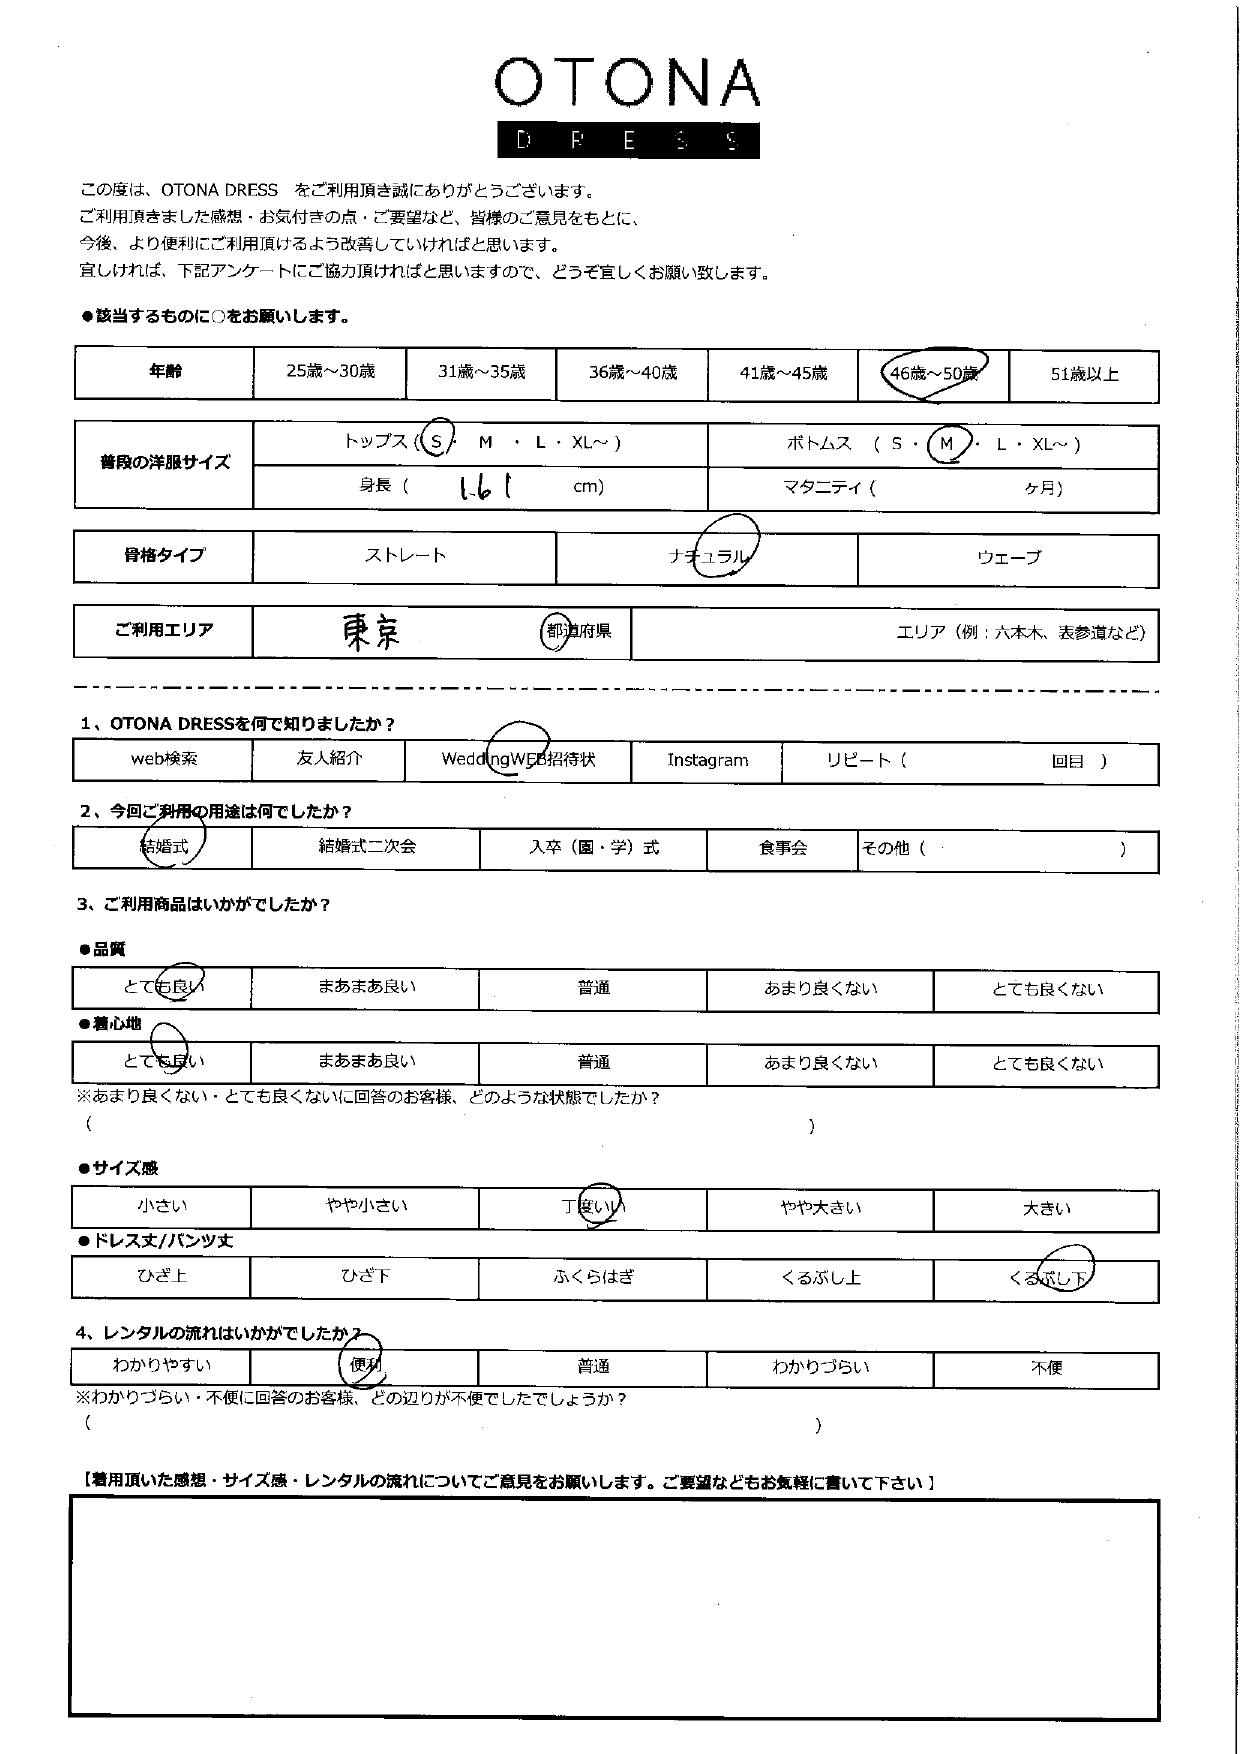 OTONA
DRESS
この度は、OTONA DRESS　をご利用頂き誠にありがとうございます。
ご利用頂きました感想・お気付きの点・ご要望など、皆様のご意見をもとに、
今後、より便利にご利用頂けるよう改善していければと思います。
宜しければ、下記アンケートにご協力頂ければと思いますので、どうぞ宜しくお願い致します。
●該当するものに○をお願いします。
年齢 25歳～30歳 31歳～35歳 36歳～40歳 41歳～45歳 46歳～50歳 51歳以上
普段の洋服サイズ トップス（ S ・ M ・ L ・ XL～ ） ボトムス （ S ・ M ・ L ・ XL～ ）
身長（ 161 cm） マタニティ（ ヶ月）
骨格タイプ ストレート ナチュラル ウェーブ
ご利用エリア 東京 都道府県 エリア（例：六本木、表参道など）
1、OTONA DRESSを何で知りましたか？
web検索 友人紹介 WeddingWEB招待状 Instagram リピート（ 回目 ）
2、今回ご利用の用途は何でしたか？
結婚式 結婚式二次会 入卒（園・学）式 食事会 その他（ ）
3、ご利用商品はいかがでしたか？
●品質
とても良い まあまあ良い 普通 あまり良くない とても良くない
●着心地
とても良い まあまあ良い 普通 あまり良くない とても良くない
※あまり良くない・とても良くないに回答のお客様、どのような状態でしたか？
（ ）
●サイズ感
小さい やや小さい 丁度いい やや大きい 大きい
●ドレス丈/パンツ丈
ひざ上 ひざ下 ふくらはぎ くるぶし上 くるぶし下
4、レンタルの流れはいかがでしたか？
わかりやすい 便利 普通 わかりづらい 不便
※わかりづらい・不便に回答のお客様、どの辺りが不便でしたでしょうか？
（ ）
【着用頂いた感想・サイズ感・レンタルの流れについてご意見をお願いします。ご要望などもお気軽に書いて下さい】